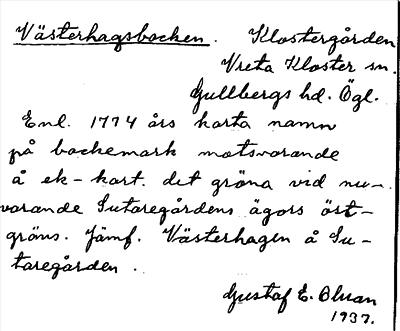 Västerhagsbacken. Klostergården
Vreta Kloster sn.
Gullbergs hd. Ögl.
Enl. 1774 års karta namn
på backemark motsvarande
å ek-kart. det gröna vid nu-
varande Sutaregårdens ägors öst-
gräns. Jämf. Västerhagen å Su-
taregården.
Gustaf E. 
1937.